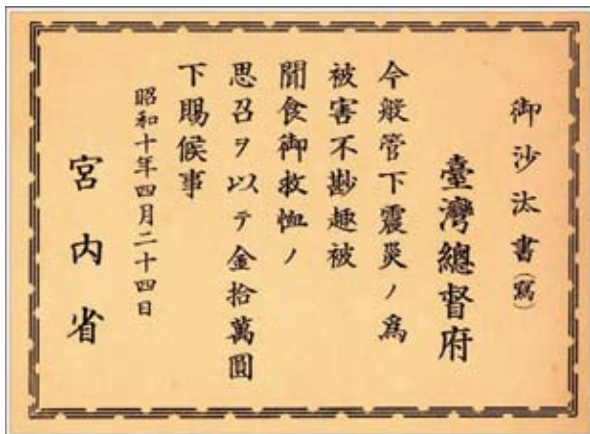 御沙汰書(寫)
臺灣總督府
今般管下震災ノ爲
被害不尠趣被
聞食御救恤ノ
思召ヲ以テ金拾萬圓
下賜候事
昭和十年四月二十四日
宮内省